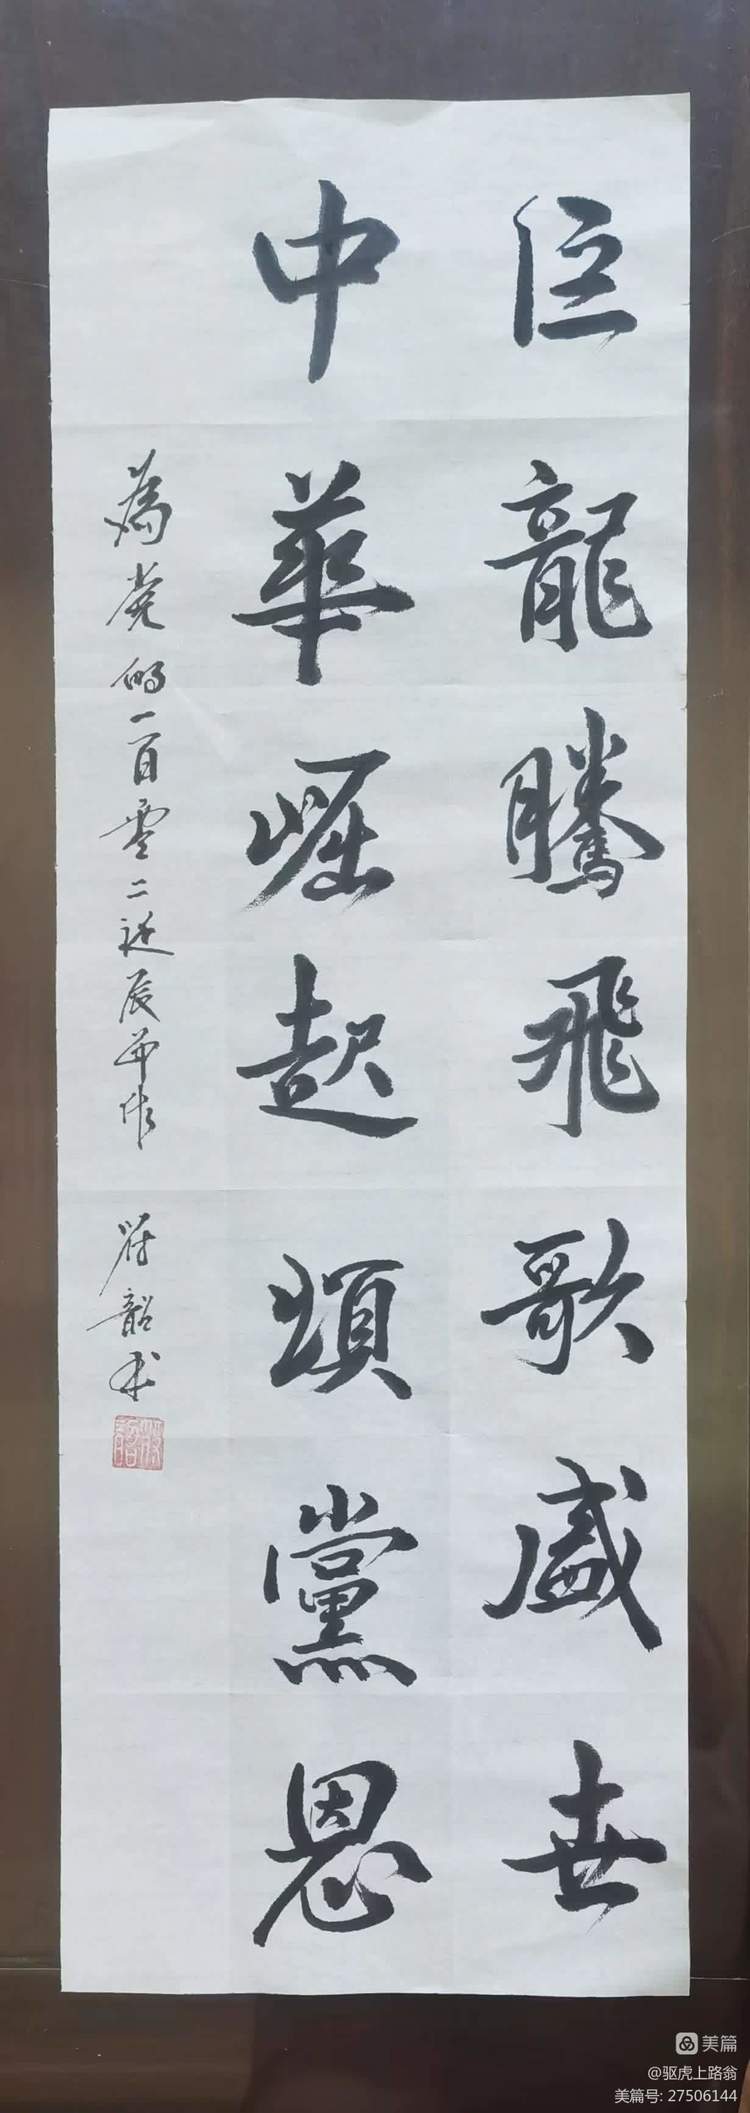 巨龍騰飛歌盛世
中華崛起頌黨恩
為党的一百零二诞辰而作
符韶書
美篇
@驱虎上路翁
美篇号: 27506144